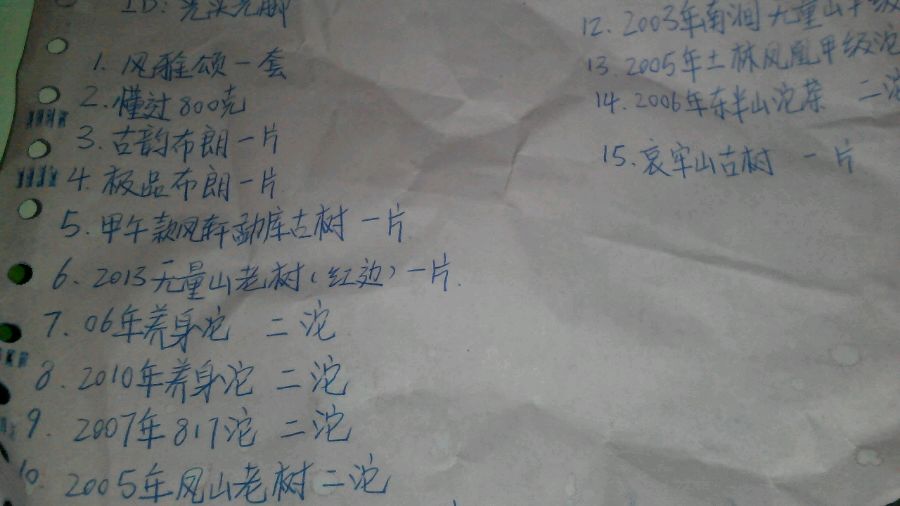 ID:光头光脚
1. 风雅颂一套
2. 懂过800克
3. 古韵布朗一片
4. 极品布朗一片
5. 甲午款凤轩勐库古树 一片
6. 2013无量山老树(红边)一片.
7. 06年养身沱 二沱
8. 2010年养身沱 二沱
9. 2007年817沱 二沱
10. 2005年凤山老树二沱
12. 2003年南涧无量山
13. 2005年土林凤凰甲级沱
14. 2006年东半山沱茶 二沱
15. 哀牢山古树 一片